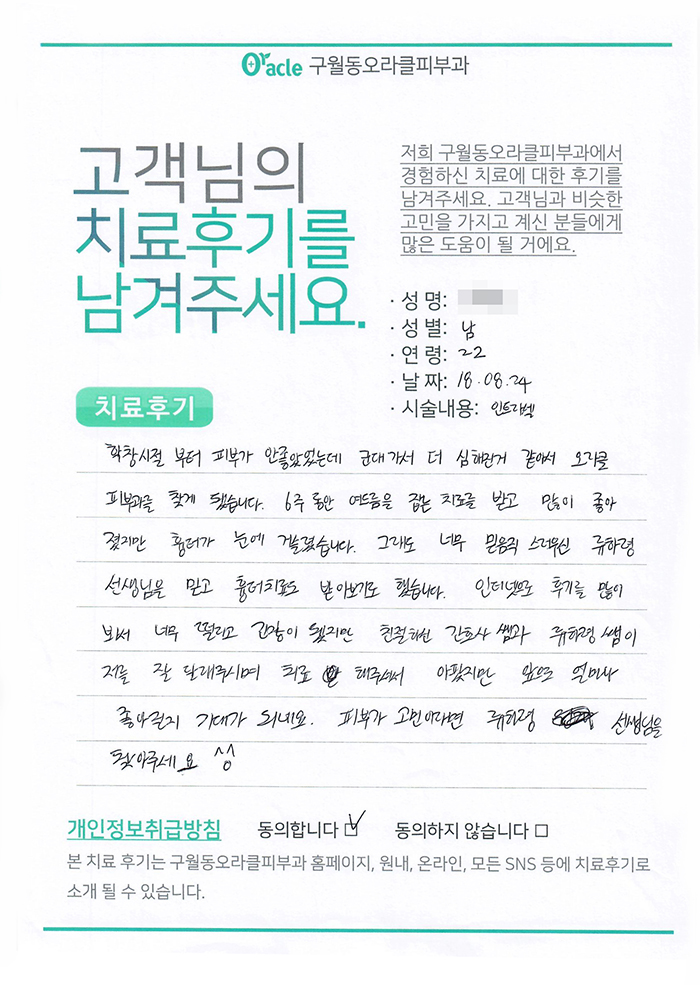 Oracle 구월동오라클피부과
고객님의
치료후기를
남겨주세요.
저희 구월동오라클피부과에서
경험하신 치료에 대한 후기를
남겨주세요. 고객님과 비슷한
고민을 가지고 계신 분들에게
많은 도움이 될 거에요.
· 성 명:
· 성 별: 남
· 연 령: 22
· 날 짜: 18.08.24
· 시술내용: 인트라벡
치료후기
학창시절 부터 피부가 안좋았었는데 군대가서 더 심해진거 같아서 오라클
피부과를 찾게 됐습니다. 6주 동안 여드름을 잡는 치료를 받고 많이 좋아
졌지만 흉터가 눈에 거슬렸습니다. 그래도 너무 믿음직 스러우신 류하령
선생님을 믿고 흉터치료도 받아보기도 했습니다. 인터넷으로 후기를 많이
봐서 너무 떨리고 긴장이 됐지만 친절하신 간호사 쌤과 류하령 쌤이
저를 잘 달래주시며 치료 해주셔서 아팠지만 앞으로 얼마나
좋아질지 기대가 되네요. 피부가 고민이라면 류하령 선생님을
찾아주세요 ^^
개인정보취급방침 동의합니다 ☑ 동의하지 않습니다 □
본 치료 후기는 구월동오라클피부과 홈페이지, 원내, 온라인, 모든 SNS 등에 치료후기로
소개 될 수 있습니다.